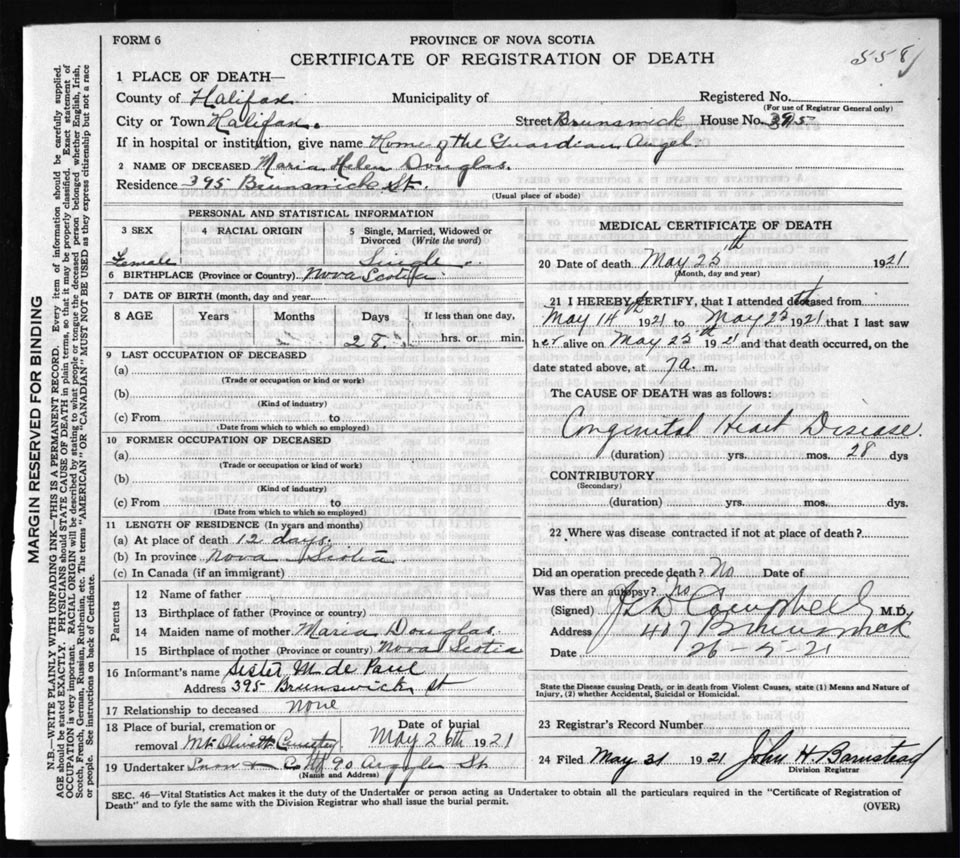 FORM 6
PROVINCE OF NOVA SCOTIA
CERTIFICATE OF REGISTRATION OF DEATH
558
1 PLACE OF DEATH—
County of Halifax Municipality of Registered No.
(For use of Registrar General only)
City or Town Halifax. Street Brunswick House No. 395
If in hospital or institution, give name Home of the Guardian Angel.
2 NAME OF DECEASED Maria Helen Douglas.
Residence 395 Brunswick St.
(Usual place of abode)
PERSONAL AND STATISTICAL INFORMATION
3 SEX 4 RACIAL ORIGIN 5 Single, Married, Widowed or Divorced (Write the word)
Female Single
6 BIRTHPLACE (Province or Country) Nova Scotia
7 DATE OF BIRTH (month, day and year)
8 AGE Years Months Days If less than one day,
28 hrs. or min.
9 LAST OCCUPATION OF DECEASED
(a)
(Trade or occupation or kind or work)
(b)
(Kind of industry)
(c) From to
(Date from which to which so employed)
10 FORMER OCCUPATION OF DECEASED
(a)
(Trade or occupation or kind of work)
(b)
(Kind of industry)
(c) From to
(Date from which to which so employed)
11 LENGTH OF RESIDENCE (In years and months)
(a) At place of death 12 days.
(b) In province Nova Scotia
(c) In Canada (if an immigrant)
Parents
12 Name of father
13 Birthplace of father (Province or country)
14 Maiden name of mother Maria Douglas.
15 Birthplace of mother (Province or country) Nova Scotia
16 Informant's name Sister M. de Paul
Address 395 Brunswick St
17 Relationship to deceased none
18 Place of burial, cremation or removal Mt. Olivett Cemetery
Date of burial May 26th 1921
19 Undertaker Snow & Co 90 Argyle St
(Name and Address)
MEDICAL CERTIFICATE OF DEATH
20 Date of death May 25th 1921
(Month, day and year)
21 I HEREBY CERTIFY, that I attended deceased from
May 14th 1921 to May 25th 1921 that I last saw
her alive on May 25th 1921 and that death occurred, on the
date stated above, at 7a. m.
The CAUSE OF DEATH was as follows:
Congenital Heart Disease.
(duration) yrs. mos. 28 dys
CONTRIBUTORY
(Secondary)
(duration) yrs. mos. dys.
22 Where was disease contracted if not at place of death?
Did an operation precede death? No Date of
Was there an autopsy? No
(Signed) Campbell M.D.
Address 407 Brunswick
Date 26-5-21
State the Disease causing Death, or in death from Violent Causes, state (1) Means and Nature of
Injury, (2) whether Accidental, Suicidal or Homicidal.
23 Registrar's Record Number
24 Filed May 31 1921 John H Barnstead
Division Registrar
SEC. 46—Vital Statistics Act makes it the duty of the Undertaker or person acting as Undertaker to obtain all the particulars required in the "Certificate of Registration of
Death" and to fyle the same with the Division Registrar who shall issue the burial permit.
(OVER)
MARGIN RESERVED FOR BINDING
N.B.—WRITE PLAINLY WITH UNFADING INK—THIS IS A PERMANENT RECORD. Every item of information should be carefully supplied.
AGE should be stated EXACTLY. PHYSICIANS should STATE CAUSE OF DEATH in plain terms, so that it may be properly classified. Exact statement of
OCCUPATION is very important. RACIAL ORIGIN will be described by stating to what people or tongue the deceased person belonged whether English, Irish,
Scotch, French, German, Russian, Ruthenian, etc. The terms "AMERICAN" OR "CANADIAN" MUST NOT BE USED as they express citizenship but not a race
or people. See instructions on back of Certificate.